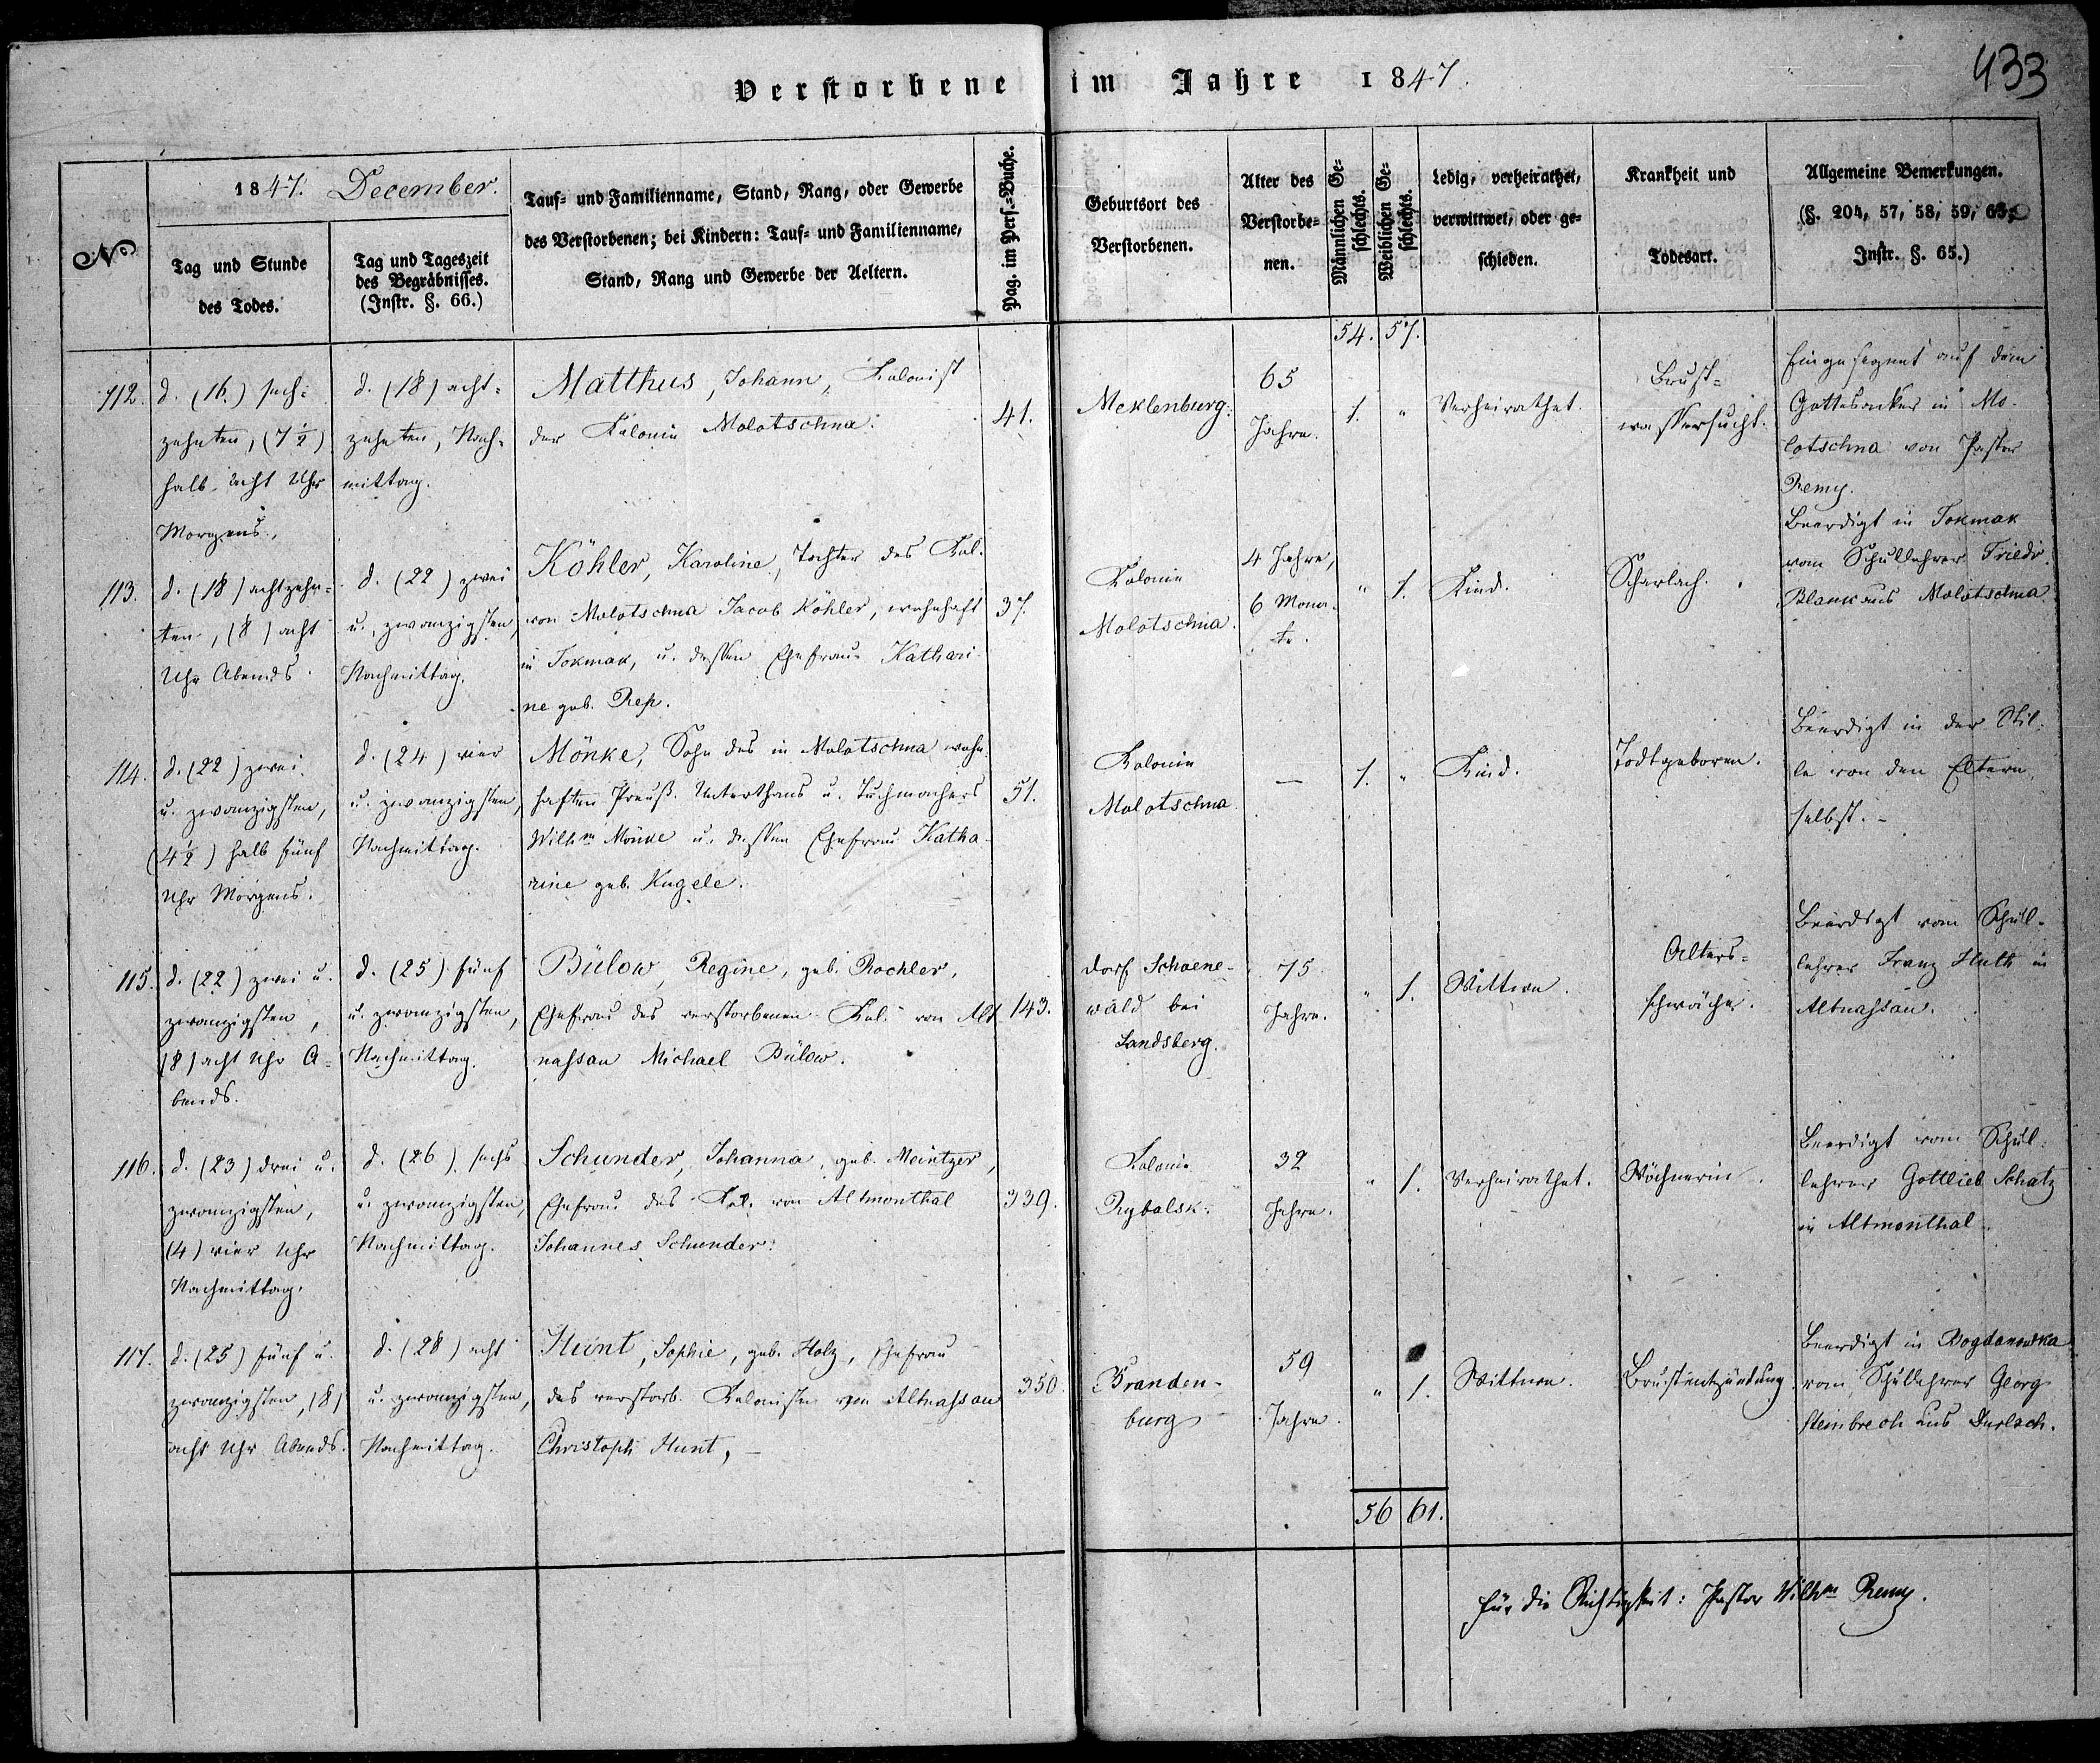 433
Verstorbene im Jahre 1847.
No
1847. December.
Tag und Stunde
des Todes.
Tag und Tageszeit
des Begräbnisses.
(Instr. §. 66.)
Tauf- und Familienname, Stand, Rang, oder Gewerbe
des Verstorbenen; bei Kindern: Tauf- und Familienname,
Stand, Rang und Gewerbe der Aeltern.
Pag. im Pers.-Buche.
Geburtsort des
Verstorbenen.
Alter des
Verstorbe-
nen.
Männlichen Ge-
schlechts.
Weiblichen Ge-
schlechts.
Ledig, verheirathet,
verwittwet, oder ge-
schieden.
Krankheit und
Todesart.
Allgemeine Bemerkungen.
(§. 204, 57, 58, 59,
Instr. §. 65.)
54. 57.
112.
d. (16.) sech-
zehnten, (7½)
halb acht Uhr
Morgens.
d. (18) acht-
zehnten, Nach-
mittag.
Matthus, Johann, Kolonist
der Kolonie Molotschna.
41.
Meklenburg.
65
Jahre.
1.
"
Verheirathet.
Brust-
wassersucht.
Eingesegnet auf dem
Gottesacker in Mo-
lotschna von Pastor
Remy.
113.
d. (18) achtzehn-
ten, (8) acht
Uhr Abends.
d. (22) zwei
u. zwanzigsten,
Nachmittag.
Köhler, Karoline, Tochter des Kol.
von Molotschna Jacob Köhler, wohnhaft
in Tokmak, u. dessen Ehefrau Kathari-
ne geb. Rep.
37.
Kolonie
Molotschna.
4 Jahre,
6 Mona-
te.
"
1.
Kind.
Scharlach.
Beerdigt in Tokmak
vom Schullehrer Friedr.
Blank aus Molotschna
114.
d. (22) zwei
u. zwanzigsten,
(4½) halb fünf
Uhr Morgens.
d. (24) vier
u. zwanzigsten,
Nachmittag.
Mönke, Sohn des in Molotschna wohn-
haften Preuß. Unterthans u. Tuchmachers
Wilhm Mönke u. dessen Ehefrau Katha-
rine geb. Kugele.
51.
Kolonie
Molotschna
—
1.
"
Kind.
Todtgeboren.
Beerdigt in der Stil-
le von den Eltern
selbst. -
115.
d. (22) zwei u.
zwanzigsten,
(8) acht Uhr A-
bends.
d. (25) fünf
u. zwanzigsten,
Nachmittag.
Bülow, Regine, geb. Rochler,
Ehefrau des verstorbenen Kol. von Alt-
nassau Michael Bülow.
143.
Dorf Schoene-
wald bei
Landsberg.
75
Jahre.
"
1.
Wittwe.
Alters-
schwäche.
Beerdigt vom Schul-
lehrer Franz Huth in
Altnassau.
116.
d. (23) drei u.
zwanzigsten,
(4) vier Uhr
Nachmittag.
d. (26) sechs
u. zwanzigsten,
Nachmittag.
Schunder, Johanna, geb. Meintzer,
Ehefrau des Kol. von Altmonthal
Johannes Schunder.
339.
Kolonie
Rybalsk.
32
Jahre.
"
1.
Verheirathet.
Wöchnerin.
Beerdigt vom Schul-
lehrer Gottlieb Schatz
in Altmonthal.
117.
d. (25) fünf u.
zwanzigsten, (8)
acht Uhr Abends.
d. (28) acht
u. zwanzigsten,
Nachmittag.
Hunt, Sophie, geb. Holz, Ehefrau
des verstorb. Kolonisten von Altnassau
Christoph Hunt, —
350.
Branden-
burg
59
Jahre.
"
1.
Wittwe.
Brustentzündung
Beerdigt in Bogdanowka
vom Schullehrer Georg
Steinbrech aus Durlach.
56 61.
Für die Richtigkeit: Pastor Wilhm Remy.